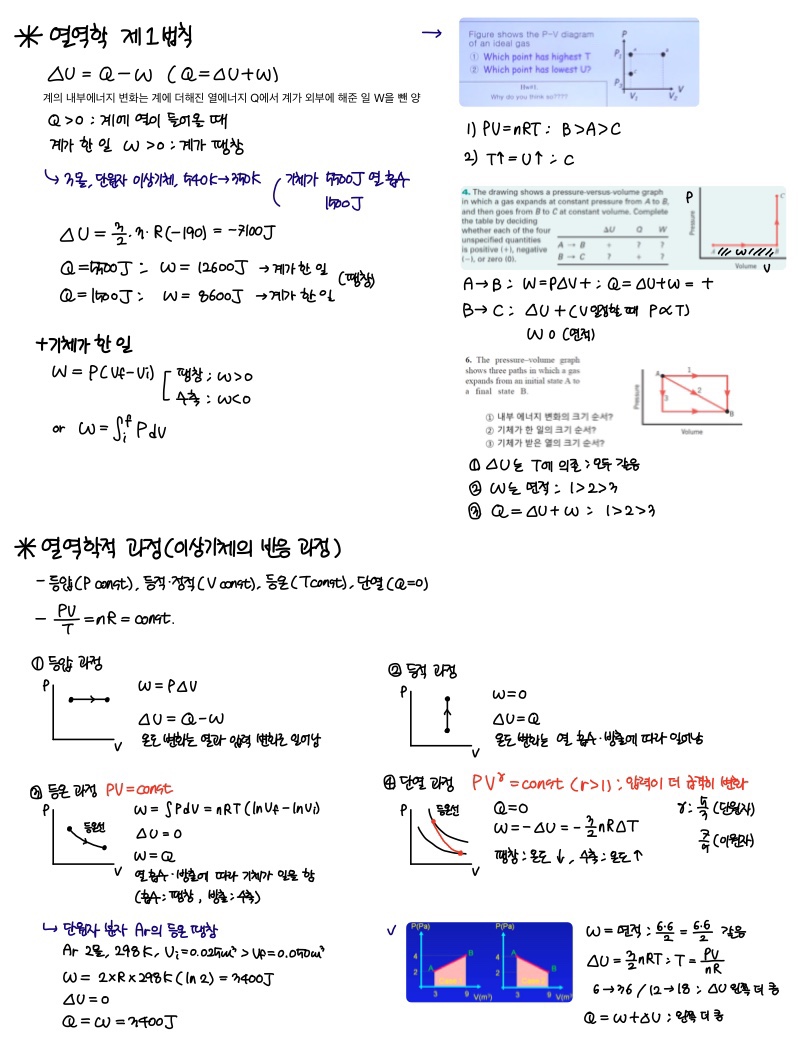 * 열역학 제1법칙
ΔU = Q - W (Q = ΔU + W)
계의 내부에너지 변화는 계에 더해진 열에너지 Q에서 계가 외부에 해준 일 W을 뺀 양
Q > 0 : 계에 열이 들어올 때
계가 한 일 W > 0 : 계가 팽창
↳ 3몰, 단원자 이상기체, 540K → 350K ( 기체가 5500J 열 흡수
1500J
ΔU = 3/2 · n · R (-190) = -7100J
Q = 5500J : W = 12600J → 계가 한 일 (팽창)
Q = 1500J : W = 8600J → 계가 한 일
+ 기체가 한 일
W = P(Vf - Vi) [ 팽창 : W > 0
수축 : W < 0
or W = ∫ᵢᶠ P dV
→
Figure shows the P-V diagram
of an ideal gas
① Which point has highest T
② Which point has lowest U?
Why do you think so????
P
P₁
P₂
A
B
C
V₁ V₂ V
1) PV = nRT : B > A > C
2) T↑ = U↑ : C
4. The drawing shows a pressure-versus-volume graph
in which a gas expands at constant pressure from A to B,
and then goes from B to C at constant volume. Complete
the table by deciding
whether each of the four
unspecified quantities
is positive (+), negative
(−), or zero (0).
ΔU Q W
A → B + ? ?
B → C ? + ?
P
Pressure
C
A W B
Volume V
A → B : W = PΔV + ; Q = ΔU + W = +
B → C : ΔU + (V 일정할 때 P ∝ T)
W 0 (면적)
6. The pressure–volume graph
shows three paths in which a gas
expands from an initial state A to
a final state B.
① 내부 에너지 변화의 크기 순서?
② 기체가 한 일의 크기 순서?
③ 기체가 받은 열의 크기 순서?
Pressure
A 1
2
3
B
Volume
① ΔU는 T에 의존 : 모두 같음
② W는 면적 : 1 > 2 > 3
③ Q = ΔU + W : 1 > 2 > 3
* 열역학적 과정(이상기체의 반응 과정)
- 등압(P const), 등적·정적(V const), 등온(T const), 단열(Q=0)
- PV/T = nR = const.
① 등압 과정
P
V
W = PΔV
ΔU = Q - W
온도 변화는 열과 압력 변화로 일어남
② 등적 과정
P
V
W = 0
ΔU = Q
온도 변화는 열 흡수·방출에 따라 일어남
③ 등온 과정 PV = const
P
등온선
V
W = ∫PdV = nRT (lnVf - lnVi)
ΔU = 0
W = Q
열 흡수·방출에 따라 기체가 일을 함
(흡수 : 팽창, 방출 : 수축)
④ 단열 과정 PV^γ = const (r > 1) : 압력이 더 급격히 변화
P
등온선
V
Q = 0
W = -ΔU = -3/2 nRΔT
팽창 : 온도 ↓, 수축 : 온도 ↑
γ : 5/3 (단원자)
(이원자)
↳ 단원자 분자 Ar의 등온 팽창
Ar 2몰, 298K, Vi = 0.025m³ > Vf = 0.050m³
W = 2×R×298K (ln 2) = 3400J
ΔU = 0
Q = W = 3400J
✓
P(Pa)
4
2
A
B
3 9 V(m³)
P(Pa)
4
2
A
B
3 9 V(m³)
W = 면적 : 6·6/2 = 6·6/2 같음
ΔU = 3/2 nRT : T = PV/nR
6 → 36 / 12 → 18 : ΔU 왼쪽 더 큼
Q = W + ΔU : 왼쪽 더 큼